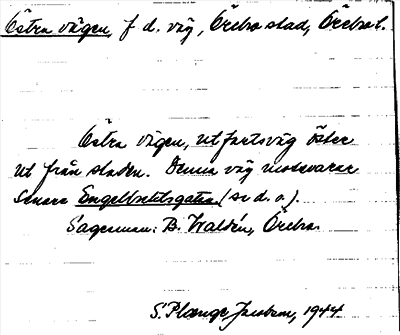 Östra vägen, f d. väg, Örebro stad, Örebro l.
Östra vägen, utfartsväg öster
ut från staden. Denna väg motsvarar
senare Engelbrektsgatan (se d. o.).
Sagesman: B. Waldén, Örebro.
S. Plange Jacobson, 1944